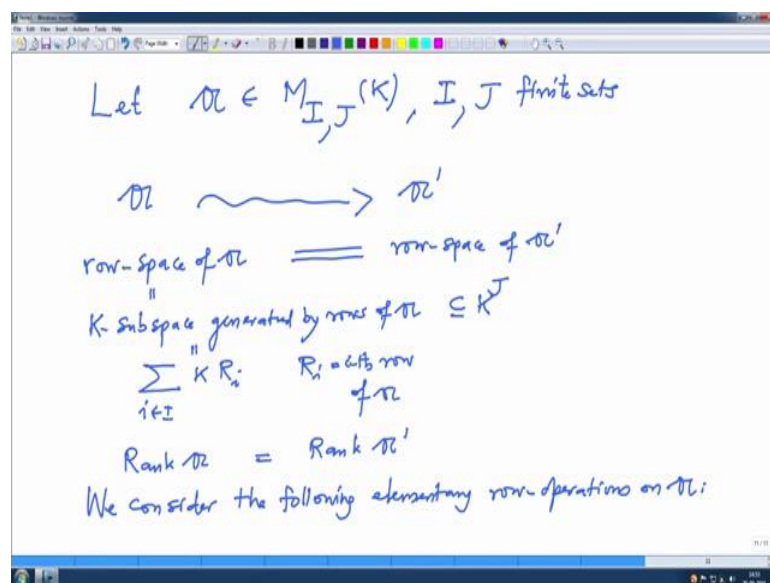 Let 𝔄 ∈ M_{I,J}(K), I, J finite sets
𝔄 ⟿ 𝔄'
row-space of 𝔄 = row-space of 𝔄'
=
K-subspace generated by rows of 𝔄 ⊆ K^J
=
∑_{i∈I} K R_i R_i = i-th row
of 𝔄
Rank 𝔄 = Rank 𝔄'
We consider the following elementary row-operations on 𝔄: